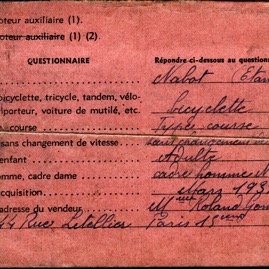 oteur auxiliaire (1).
oteur auxiliaire (1) (2).
QUESTIONNAIRE Répondre ci-dessous au question
Nabot (Etan
bicyclette, tricycle, tandem, vélo-
riporteur, voiture de mutilé, etc. bicyclette
course Type course
sans changement de vitesse sans changement
enfant Adulte
omme, cadre dame cadre homme
cquisition Mars 193
adresse du vendeur Mr Roland
44 Rue Letellier Paris 15eme